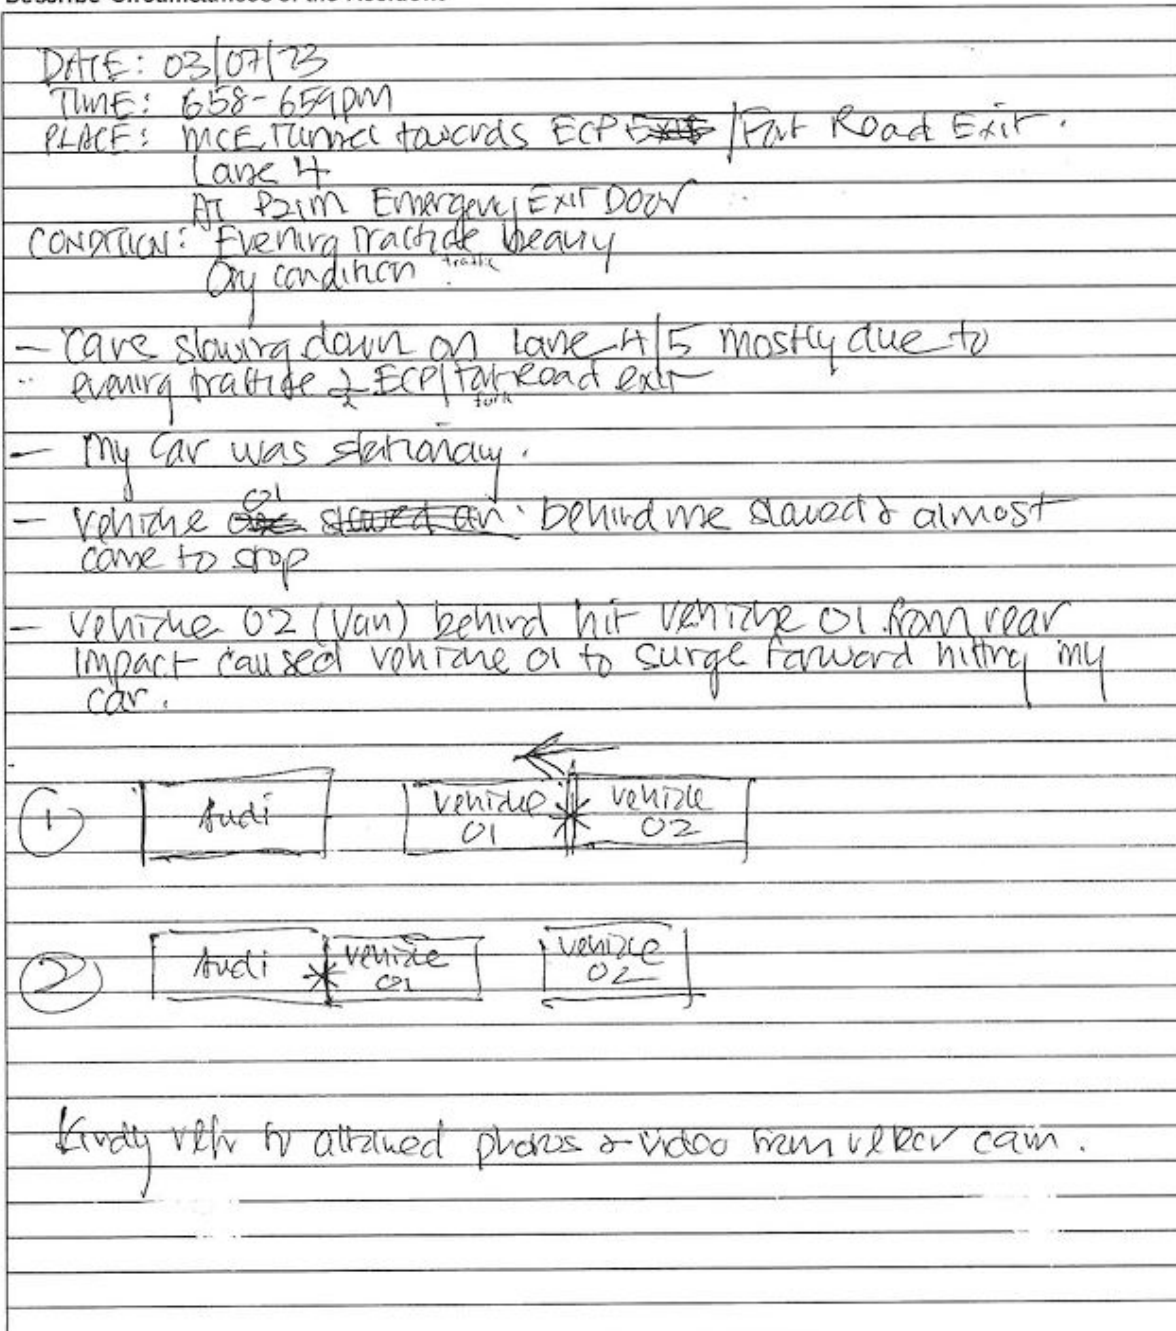 DATE: 03/07/23
TIME: 658-659pm
PLACE: MCE Tunnel towards ECP Exit /Fort Road Exit.
Lane 4
AT P21m Emergency Exit Door
CONDITION: Evening traffic heavy
traffic
Dry condition.
- Cars slowing down on lane 4/5 mostly due to
evening traffic & ECP/Fort Road exit
fork
- My car was stationary.
01
- Vehicle one slowed an behind me slowed & almost
come to stop
- Vehicle 02 (Van) behind hit vehicle 01 from rear
impact caused vehicle 01 to surge forward hitting my
car.
1 Audi vehicle 01 vehicle 02
2 Audi vehicle 01 vehicle 02
Kindly refer to attached photos & video from cam.